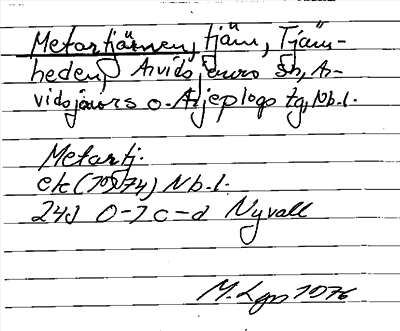 Metartjärnen, tjärn, Tjärn-
heden, Arvidsjaurs sn, Ar-
vidsjaurs o. Arjeplogs tg, Nb.l.
Metartj.
ek (1974) Nb.l.
24J 0-1 c-d Nyvall
M. 1976